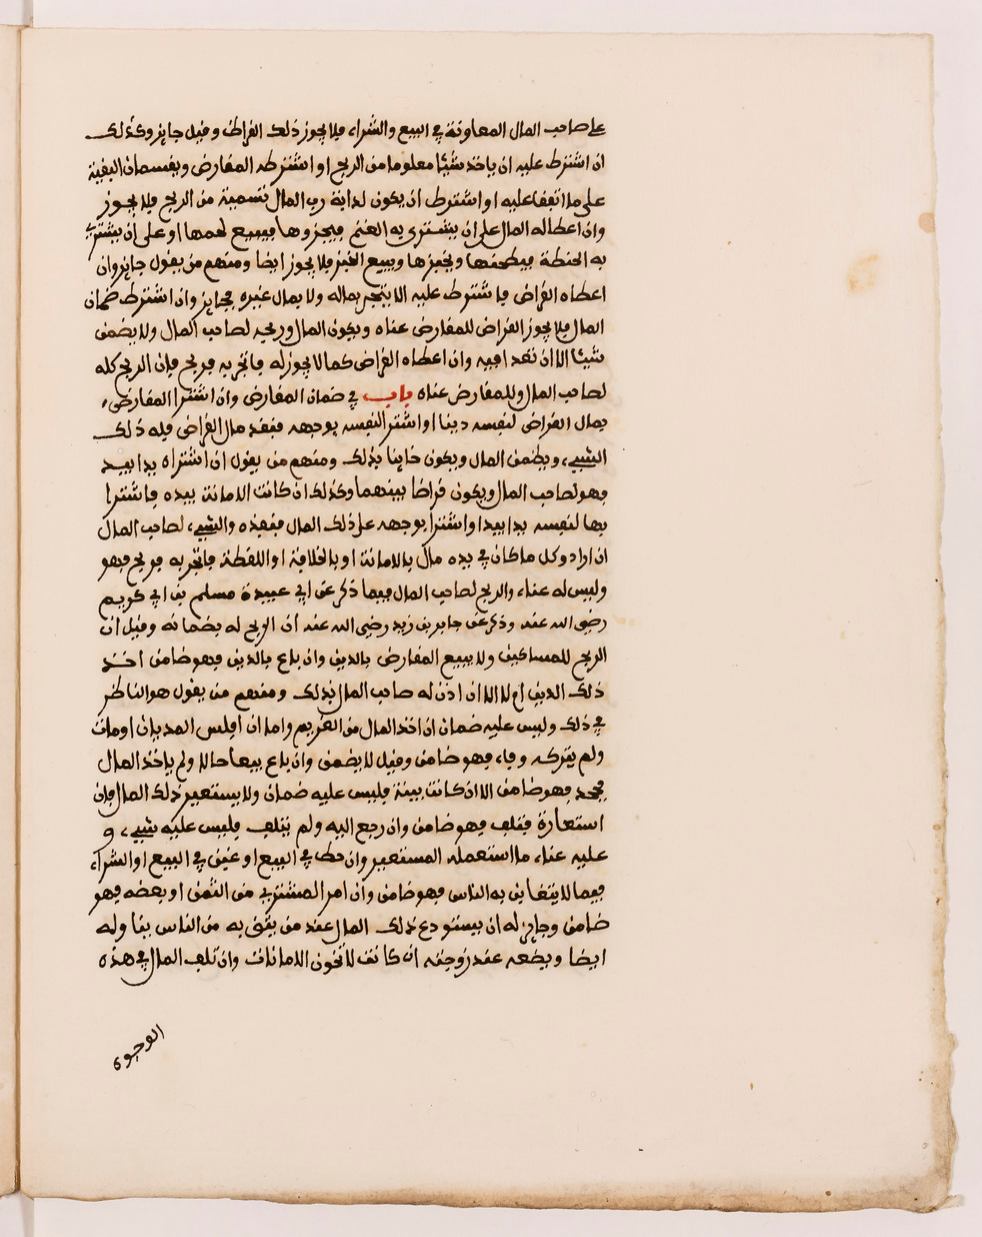 على صاحب المال المعاونة في البيع والشراء فلا يجوز ذلك القراض وقيل جايز وكذلك
ان اشترط عليه ان ياخذ شيئا معلوما من الربح او اشترطه المقارض ويقسمان البقية
على ما اتفقا عليه او اشترط ان يكون لدابة رب المال تسمية من الربح فلا يجوز
وان اعطا له المال على ان يشتري به الغنم فيجزوها فيبيع لحمها او على ان يشتري
به الحنطة فيطحنها ويخبزها ويبيع الخبز فلا يجوز ايضا ومنهم من يقول جايز وان
اعطاه القراض فاشترط عليه الا يتجر بماله ولا بمال غيره فجايز وان اشترط ضمان
المال فلا يجوز القراض للمقارض عناه ويكون المال وربحه لصاحب المال ولا يضمن
شيئا الا ان تعدا فيه وان اعطاه القراض كما لا يجوز له فاتجر به فربح فان الربح كله
لصاحب المال وللمقارض عناه باب في ضمان المقارض وان اشترا المقارض
بمال القراض لنفسه دينا او اشترا لنفسه بوجهه فنقد مال القراض فله ذلك
الشيء ويضمن المال ويكون خاينا بذلك ومنهم من يقول ان اشتراه يدا بيد
فهو لصاحب المال ويكون قراضا بينهما وكذلك ان كانت الامانة بيده فاشترا
بها لنفسه يدا بيد او اشترا بوجهه على ذلك المال فنقده والشيء لصاحب المال
ان اراد وكل ما كان في يده مال بالامانة او بالخلافة او اللقطة فاتجر به فربح فهو
وليس له عناء والربح لصاحب المال فيما ذكر عن ابي عبيدة مسلم بن ابي كريم
رضي الله عنه وذكر عن جابر بن زيد رضي الله عنه ان الربح له بضمانه وقيل ان
الربح للمساكين ولا يبيع المقارض بالدين وان باع بالدين فهو ضامن اخذ
ذلك الدين ام لا الا ان اذن له صاحب المال بذلك ومنهم من يقول هو الناظر
في ذلك وليس عليه ضمان ان اخذ المال من الغريم واما ان افلس المديان او مات
ولم يترك وفاء فهو ضامن وقيل لا يضمن وان باع بيعا حالا ولم ياخذ المال
فجحد فهو ضامن الا ان كانت بينة فليس عليه ضمان ولا يستعير ذلك المال فان
استعاره فتلف فهو ضامن وان رجع اليه ولم يتلف فليس عليه شيء و
عليه عناء ما استعمله المستعير وان حط في البيع او غبن في البيع او الشراء
فيما لا يتغابن به الناس فهو ضامن وان امر المشتري من الثمن او بعضه فهو
ضامن وجايز له ان يستودع ذلك المال عند من يثق به من الناس يناوله
ايضا ويضعه عند زوجته ان كانت لا تخون الامانات وان تلف المال في هذه
الوجوه